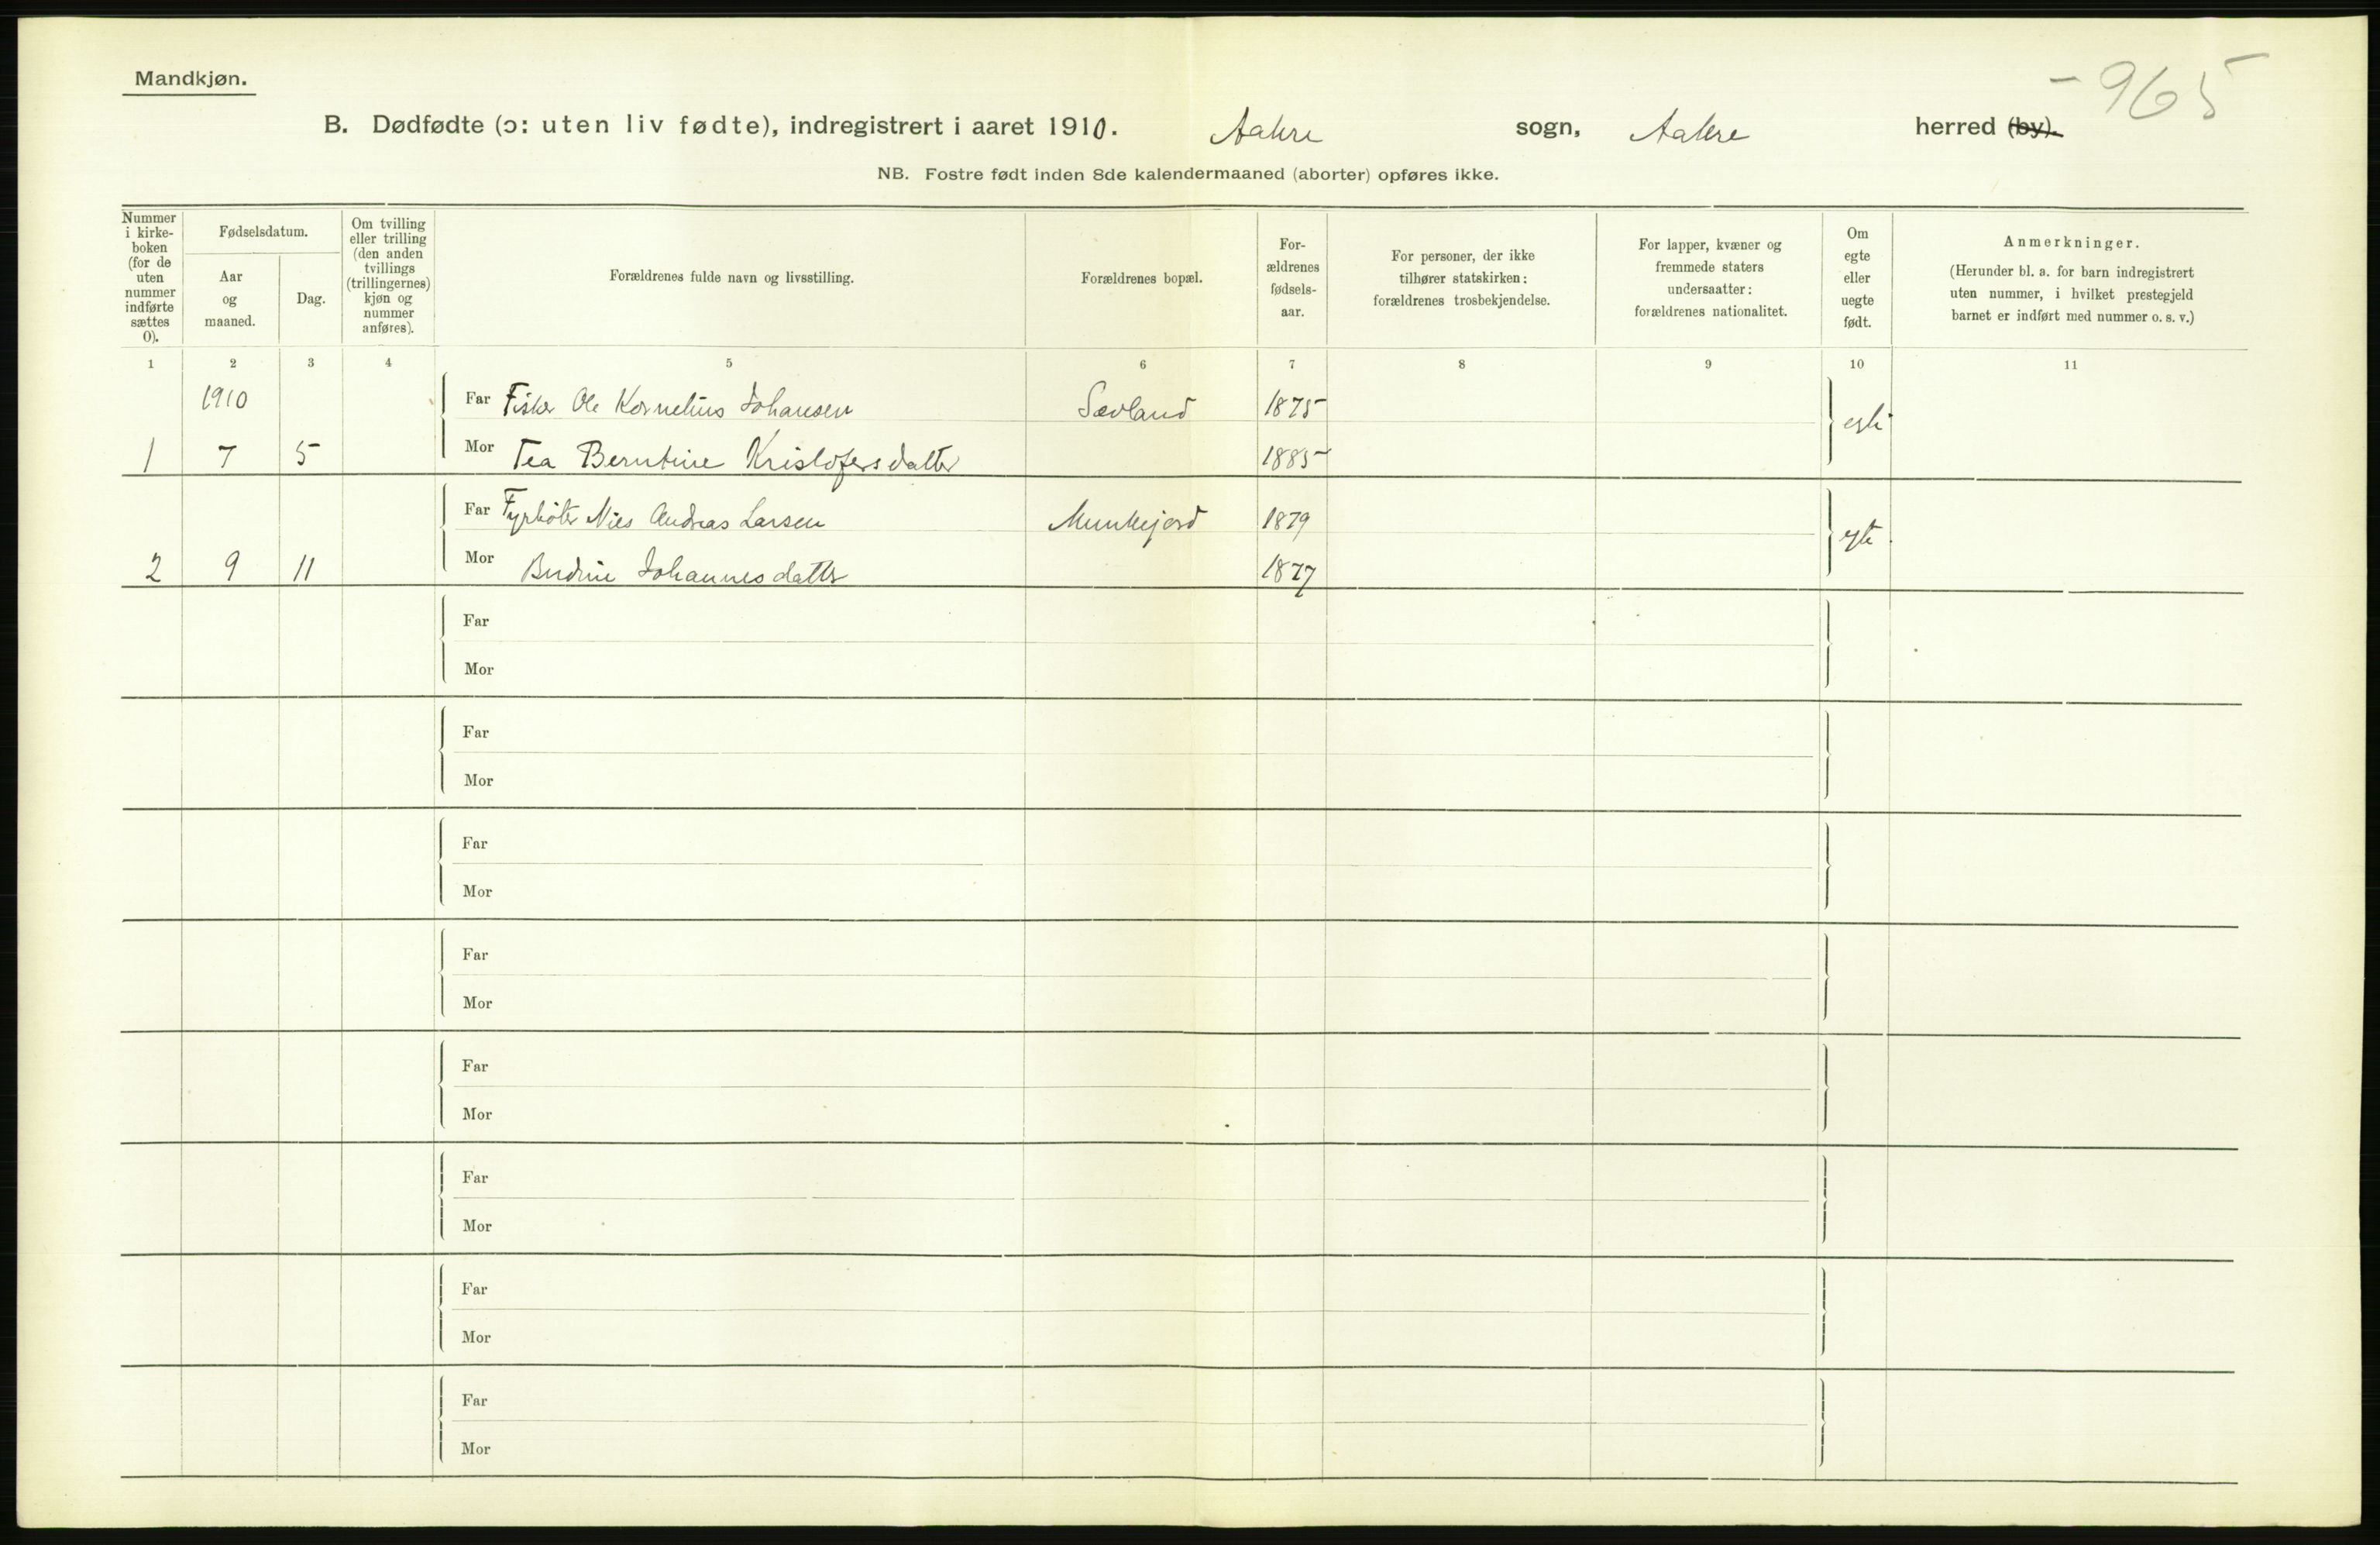 Mandkjøn.
-965
B. Dødfødte (ɔ: uten liv fødte), indregistrert i aaret 1910. Aakre sogn, Aakre herred (by).
NB. Fostre født inden 8de kalendermaaned (aborter) opføres ikke.
Nummer i kirke- boken (for de uten nummer indførte sættes 0).
Fødselsdatum.
Aar og maaned.
Dag.
Om tvilling eller trilling (den anden tvillings (trillingernes) kjøn og nummer anføres).
Forældrenes fulde navn og livsstilling.
Forældrenes bopæl.
For- ældrenes fødsels- aar.
For personer, der ikke tilhører statskirken: forældrenes trosbekjendelse.
For lapper, kvæner og fremmede staters undersaatter: forældrenes nationalitet.
Om egte eller uegte født.
Anmerkninger.
(Herunder bl. a. for barn indregistrert uten nummer, i hvilket prestegjeld barnet er indført med nummer o. s. v.)
1 2 3 4 5 6 7 8 9 10 11
1910 Far Fisker Ole Kornelius Johansen Sævland 1875 egte
1 7 5 Mor Tea Berntine Kristofersdatter 1885
Far Fyrbøter Nils Andreas Larsen Munkejord 1879 egte
2 9 11 Mor Johannesdatter 1877
Far
Mor
Far
Mor
Far
Mor
Far
Mor
Far
Mor
Far
Mor
Far
Mor
Far
Mor